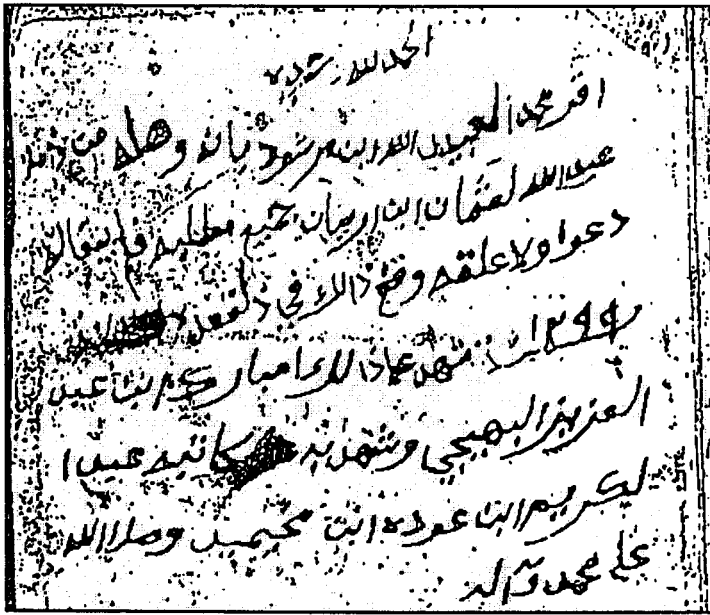 الحمد لله
اقر محمد العبيد الله ابن مرشود بانه وصله من
عبد الله لعثمان ابن ارميان جميع مطلبه فا ابقا له
دعوا ولا علقه وقع ذالك في ذلقعده
١٢٩٩ شهد عاذالك امبارك ابن عبد
العزيز البهيجي وشهد به كاتبه عبد ا
لكريم ابن عوده ابن محيميد وصلا الله
على محمد وآله